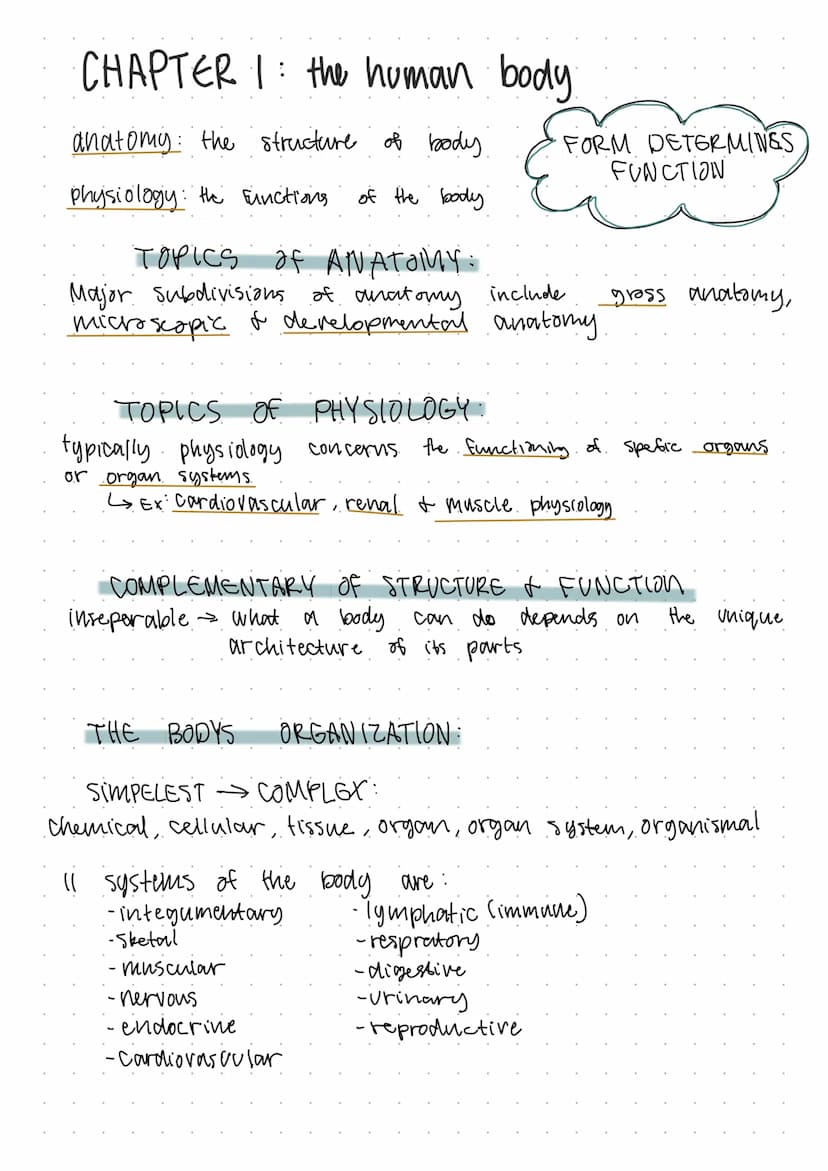 CHAPTER 1: the human body
anatomy: the structure of body
physiology: the functions of the body
FORM DETERMINES
FUNCTION
TOPICS of ANATOMY:
Major subdivisions of anatomy include gross anatomy,
microscopic & developmental anatomy
TOPICS OF PHYSIOLOGY:
typically physiology concerns the functioning of spefic organs
or organ systems
↳ Ex: cardiovascular, renal & muscle physiology
COMPLEMENTARY OF STRUCTURE & FUNCTION
inseperable → what a body can do depends on the unique
architecture of its parts
THE BODYS ORGANIZATION:
SIMPELEST → COMPLEX:
chemical, cellular, tissue, organ, organ system, organismal
11 systems of the body are:
- integumentary
- sketal
- muscular
- nervous
- endocrine
- cardiovascular
- lymphatic (immune)
- respratory
- digestive
- urinary
- reproductive